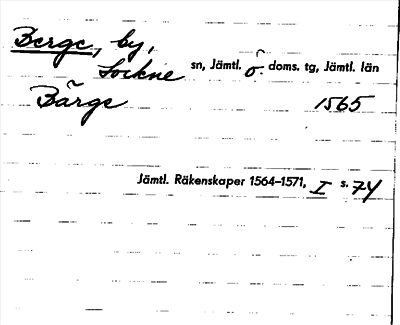 Berge, by,
Lockne sn, Jämtl. ö. doms. tg, Jämtl. län
Bärge 1565
Jämtl. Räkenskaper 1564–1571, I s. 74